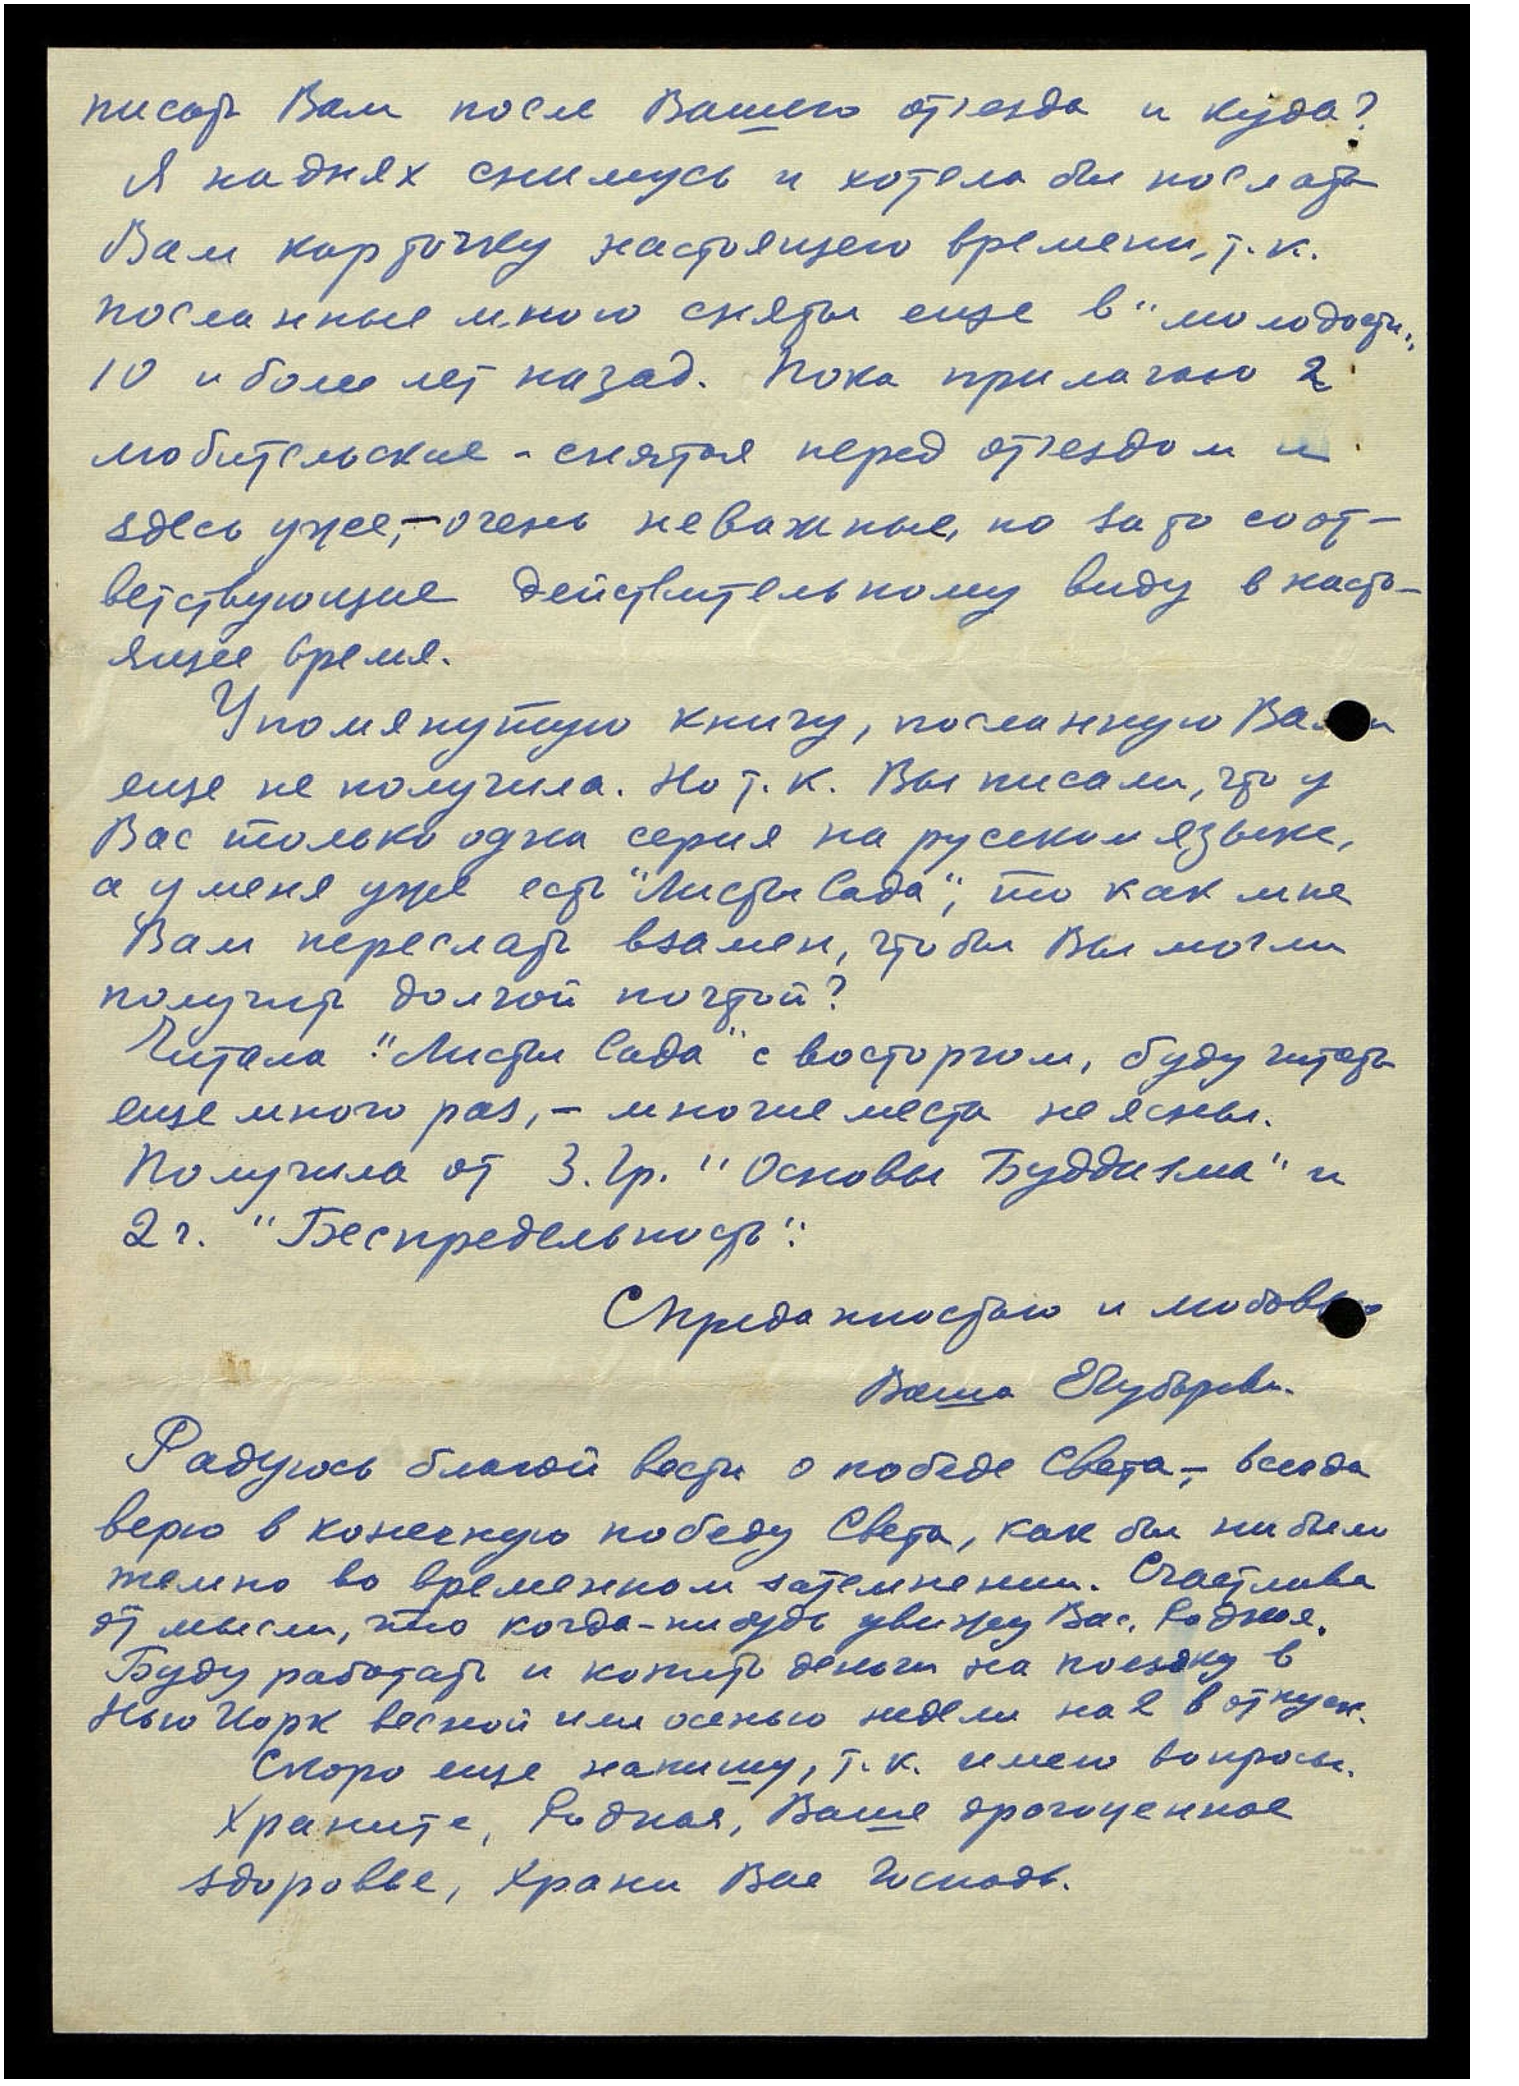 писать Вам после Вашего отъезда и куда?
Я на днях снимусь и хотела бы послать
Вам карточку настоящего времени, т.к.
посланные мною сняты еще в "молодости",
10 и более лет назад. Пока прилагаю 2
любительские - снятая перед отъездом и
здесь уже, - очень неважные, но зато соот-
ветствующие действительному виду в насто-
ящее время.
Упомянутую книгу, посланную Вами
еще не получила. Но т.к. Вы писали, что у
Вас только одна серия на русском языке,
а у меня уже есть "Листы Сада", то как мне
Вам переслать взамен, чтобы Вы могли
получить долгой почтой?
Читала "Листы Сада" с восторгом, буду читать
еще много раз, - многие места не ясны.
Получила от З. Гр. "Основы Буддизма" и
2 ч. "Беспредельность".
С преданностью и любовью
Ваша
Радуюсь благой вести о победе Света, - всегда
верю в конечную победу Света, как бы ни было
темно во временном затемнении. Счастлива
от мысли, что когда-нибудь увижу Вас, Родная.
Буду работать и копить деньги на поездку в
Нью Иорк весной или осенью недели на 2 в отпуск.
Скоро еще напишу, т.к. имею вопросы.
Храните, Родная, Ваше драгоценное
здоровье, Храни Вас Господь.